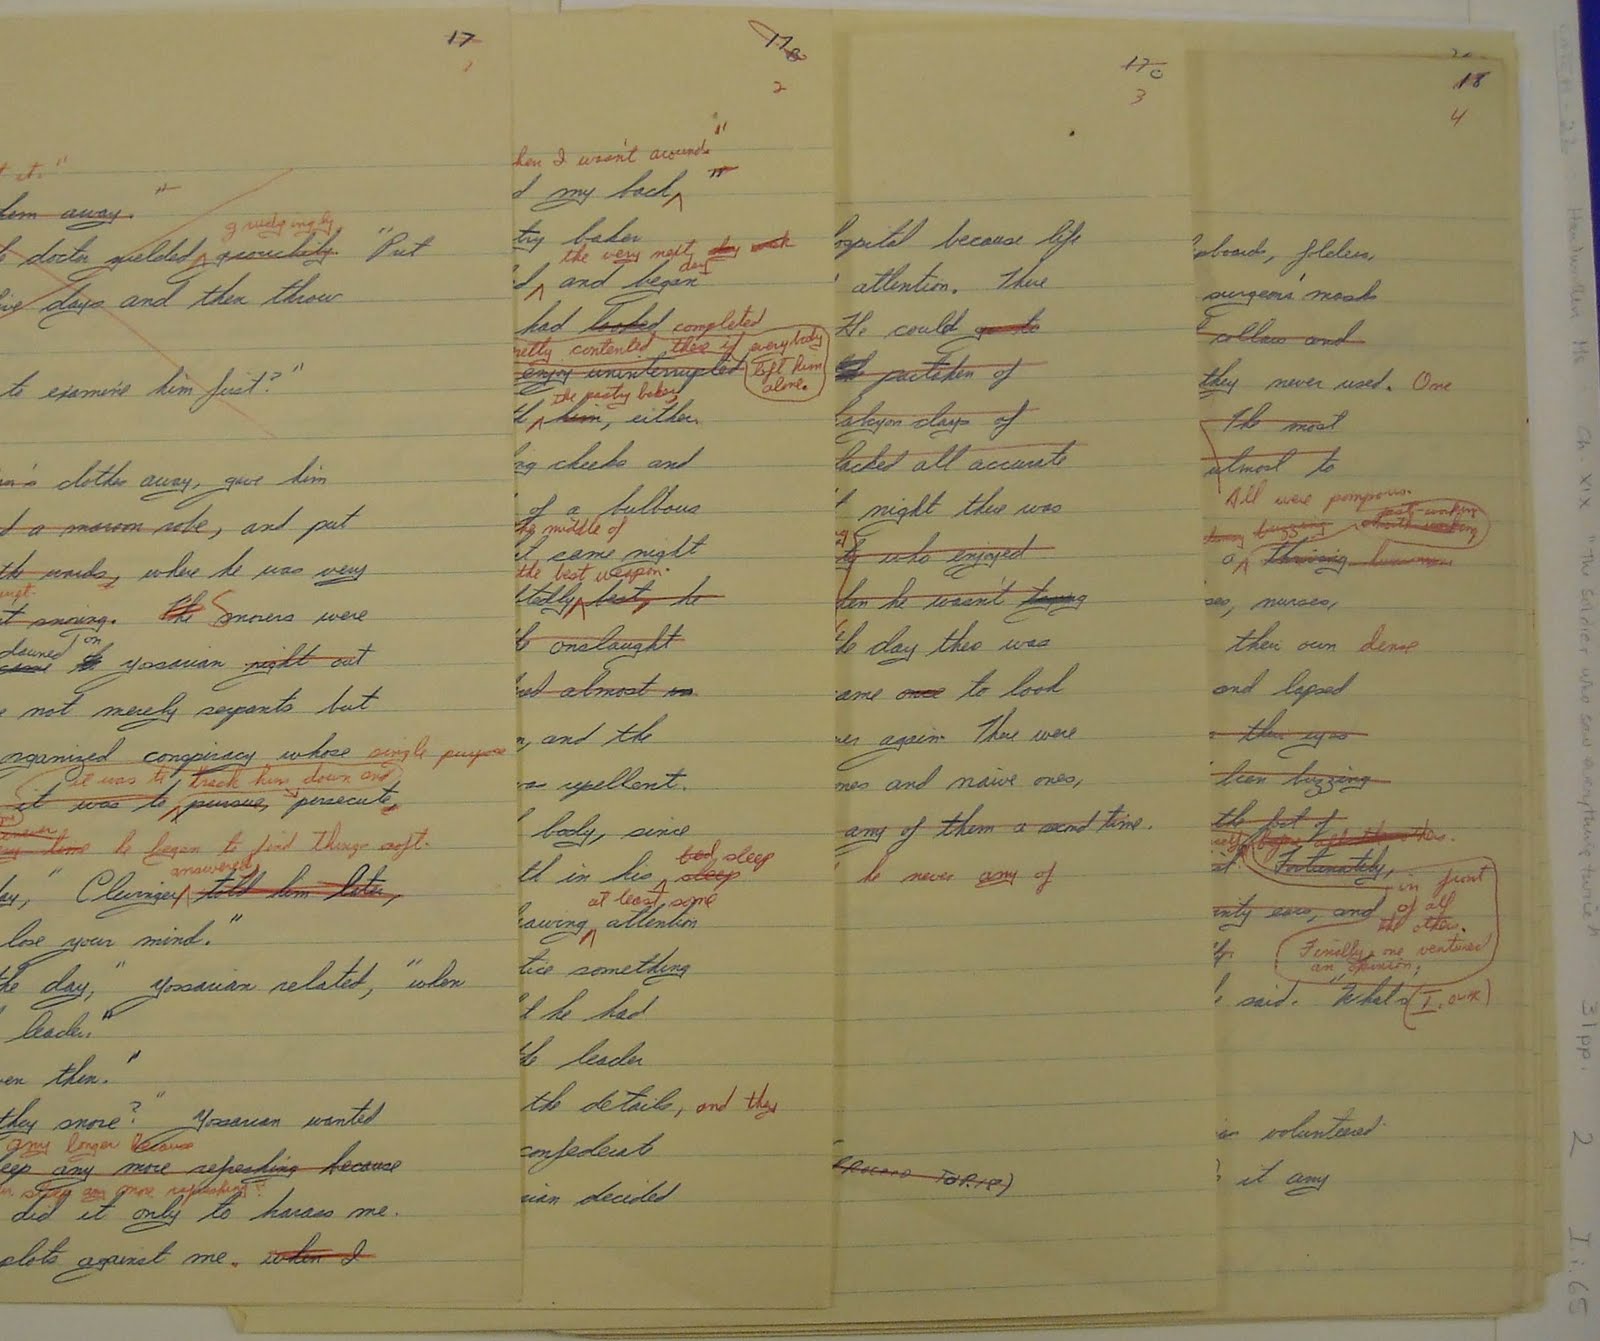 17
t it."
him away."
grudgingly
doctor yielded grouchily. "Put
five days and then throw
to examine him first?"
clothes away, gave him
d a maroon robe, and put
the wards, where he was very
t snoring. The Snorers were
dawned on
Yossarian right out
not merely serpents but
organized conspiracy whose single purpose
it was to track him down and
it was to pursue, persecute
he began to find things soft.
answered
ay," Clevinger told him later,
lose your mind."
the day," Yossarian related, "when
leader."
en then."
they snore?" Yossarian wanted
any longer because
eep any more refreshing because
more refreshing?"
did it only to harass me.
plots against me. when I
17 B
2
hen I wasn't around."
d my back"
try baker
the very next day
d and began
had looked completed
retty contented there if everybody left him alone.
enjoy uninterrupted
the pastry baker
him, either.
ng cheeks and
of a bulbous
the middle of
t came night
the best weapon.
tedly best, he
onslaught
ed almost in
n, and the
as repellent.
body, since
bed sleep
th in his sleep
at least some
awing attention
tice something
t he had
the leader
the details, and they
confederate
rian decided
17 C
3
ospital because life
attention. There
He could go to
partaken of
alcyon days of
lacked all accurate
t night there was
ty who enjoyed
hen he wasn't
the day there was
ame once to look
ner again. There were
mes and naive ones,
any of them a second time.
he never any of
18
4
pboards, folders,
surgeons' masks
collars and
they never used. One
The most
utmost to
All were pompous.
buzzing
a thriving
ses, nurses,
their own dense
and lapsed
their eyes
been buzzing
the foot of
Fortunately,
in front
nty ears, and of all
the others.
Finally, one ventured
an opinion,
said. "What's
volunteered
it any
Handwritten Ms
Ch XIX "The Soldier who saw everything twice"
31pp. 2 I.i.65